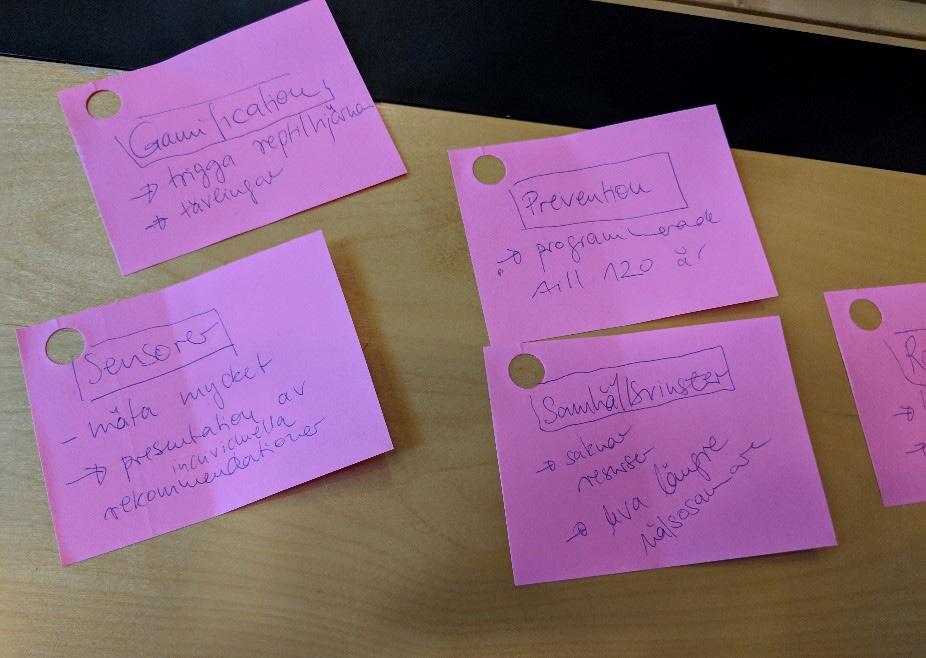 Gamification
→ trigga reptilhjärnan
→ tävlingar
Prevention
→ programmerade
till 120 år
Sensorer
- mäta mycket
→ presentation av
individuella
rekommendationer
Samhällsvinster
→ saknar
resurser
→ leva längre
hälsosammare